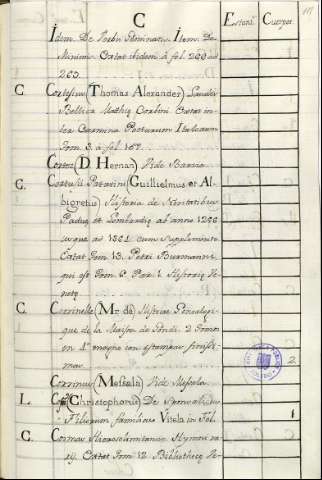 C
Estant. Cuerpos.
Idem De Iterum De
Extat ibidem à fol. 200 ad
203.
C. Cortesius (Thomas Alexander) Laudes
Bellicæ Mathiæ Corvini Extat in
ter Carmina Poetarum Italorum
Tom. 3. à fol. 167.
Cortes (D. Hernan) Vide Barcia
C. Cortusii Patavini (Guillielmus et Al-
brigetus) Historia de Novitatibus
Paduæ et Lombardiæ ab anno 1256
usque ad 1364 cum Supplemento
Extat Tom. 13. Petri Burmanni
qui est Tom. 6. Par. 1. Historiæ
C. Corvinelle (Mr. de) Histoire Genealogi-
que de la Maison de Gondi. 2 Tomos
en 4º magno con estampas finissi-
mas. 2
Corvinus (Messala) Vide Messala
L. (Christophorus) De
familiæ Vitela in fol. 1
C. Cosmas Hierosolimitanus Hymni va-
rii. Extat Tom. 12 Bibliothecæ